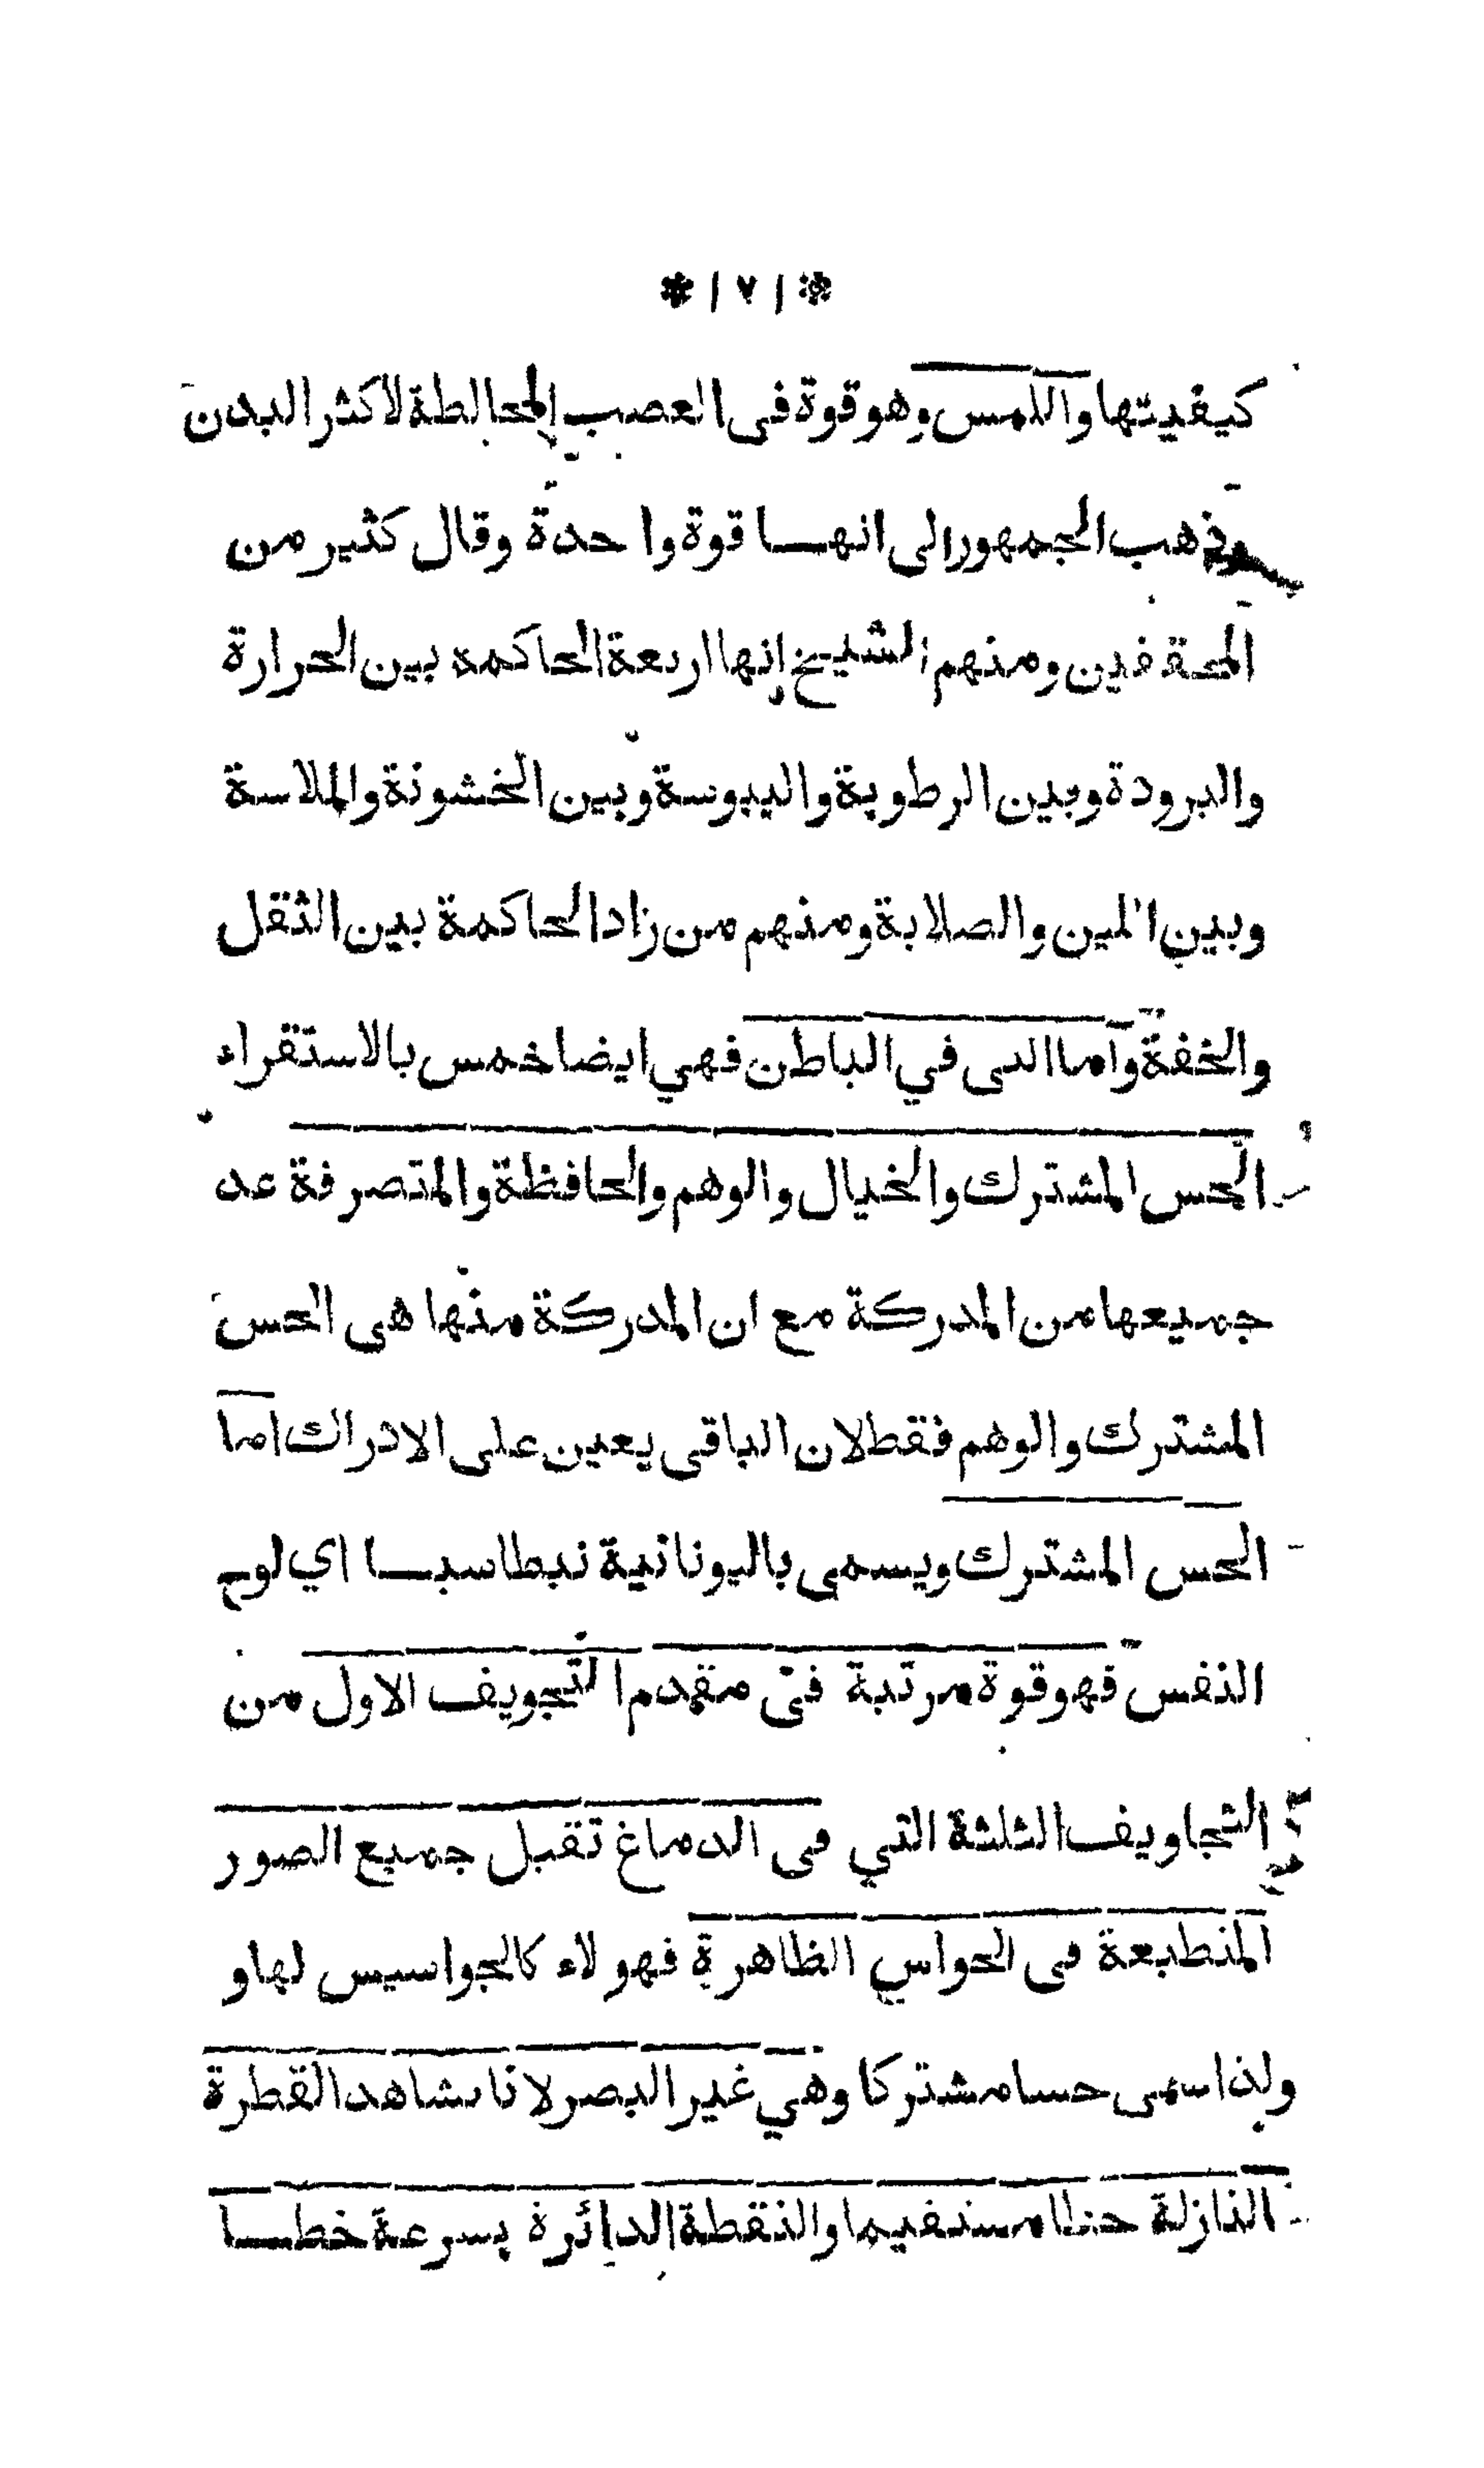 * ١٧١ *
كيفيتها واللمس وهو قوة فى العصب المخالطة لاكثر البدن
وذهب الجمهور الى انهــا قوة واحدة وقال كثير من
المحققين ومنهم الشيخ انها اربعة الحاكمة بين الحرارة
والبرودة وبين الرطوبة واليبوسة وبين الخشونة والملاسة
وبين اللين والصلابة ومنهم من زاد الحاكمة بين الثقل
والخفة واما التى في الباطن فهي ايضا خمس بالاستقراء
الحس المشترك والخيال والوهم والحافظة والمتصرفة عد
جميعها من المدركة مع ان المدركة منها هى الحس
المشترك والوهم فقط لان الباقى يعين على الادراك اما
الحس المشترك ويسمى باليونانية نبطاسيــا اي لوح
النفس فهو قوة مرتبة فى مقدم التجويف الاول من
التجاويف الثلثة التي فى الدماغ تقبل جميع الصور
المنطبعة فى الحواس الظاهرة فهولاء كالجواسيس لها و
ولذا سمى حسا مشتركا وهي غير البصر لانا نشاهد القطرة
النازلة خطا مستقيما والنقطة الدائرة بسرعة خطــا